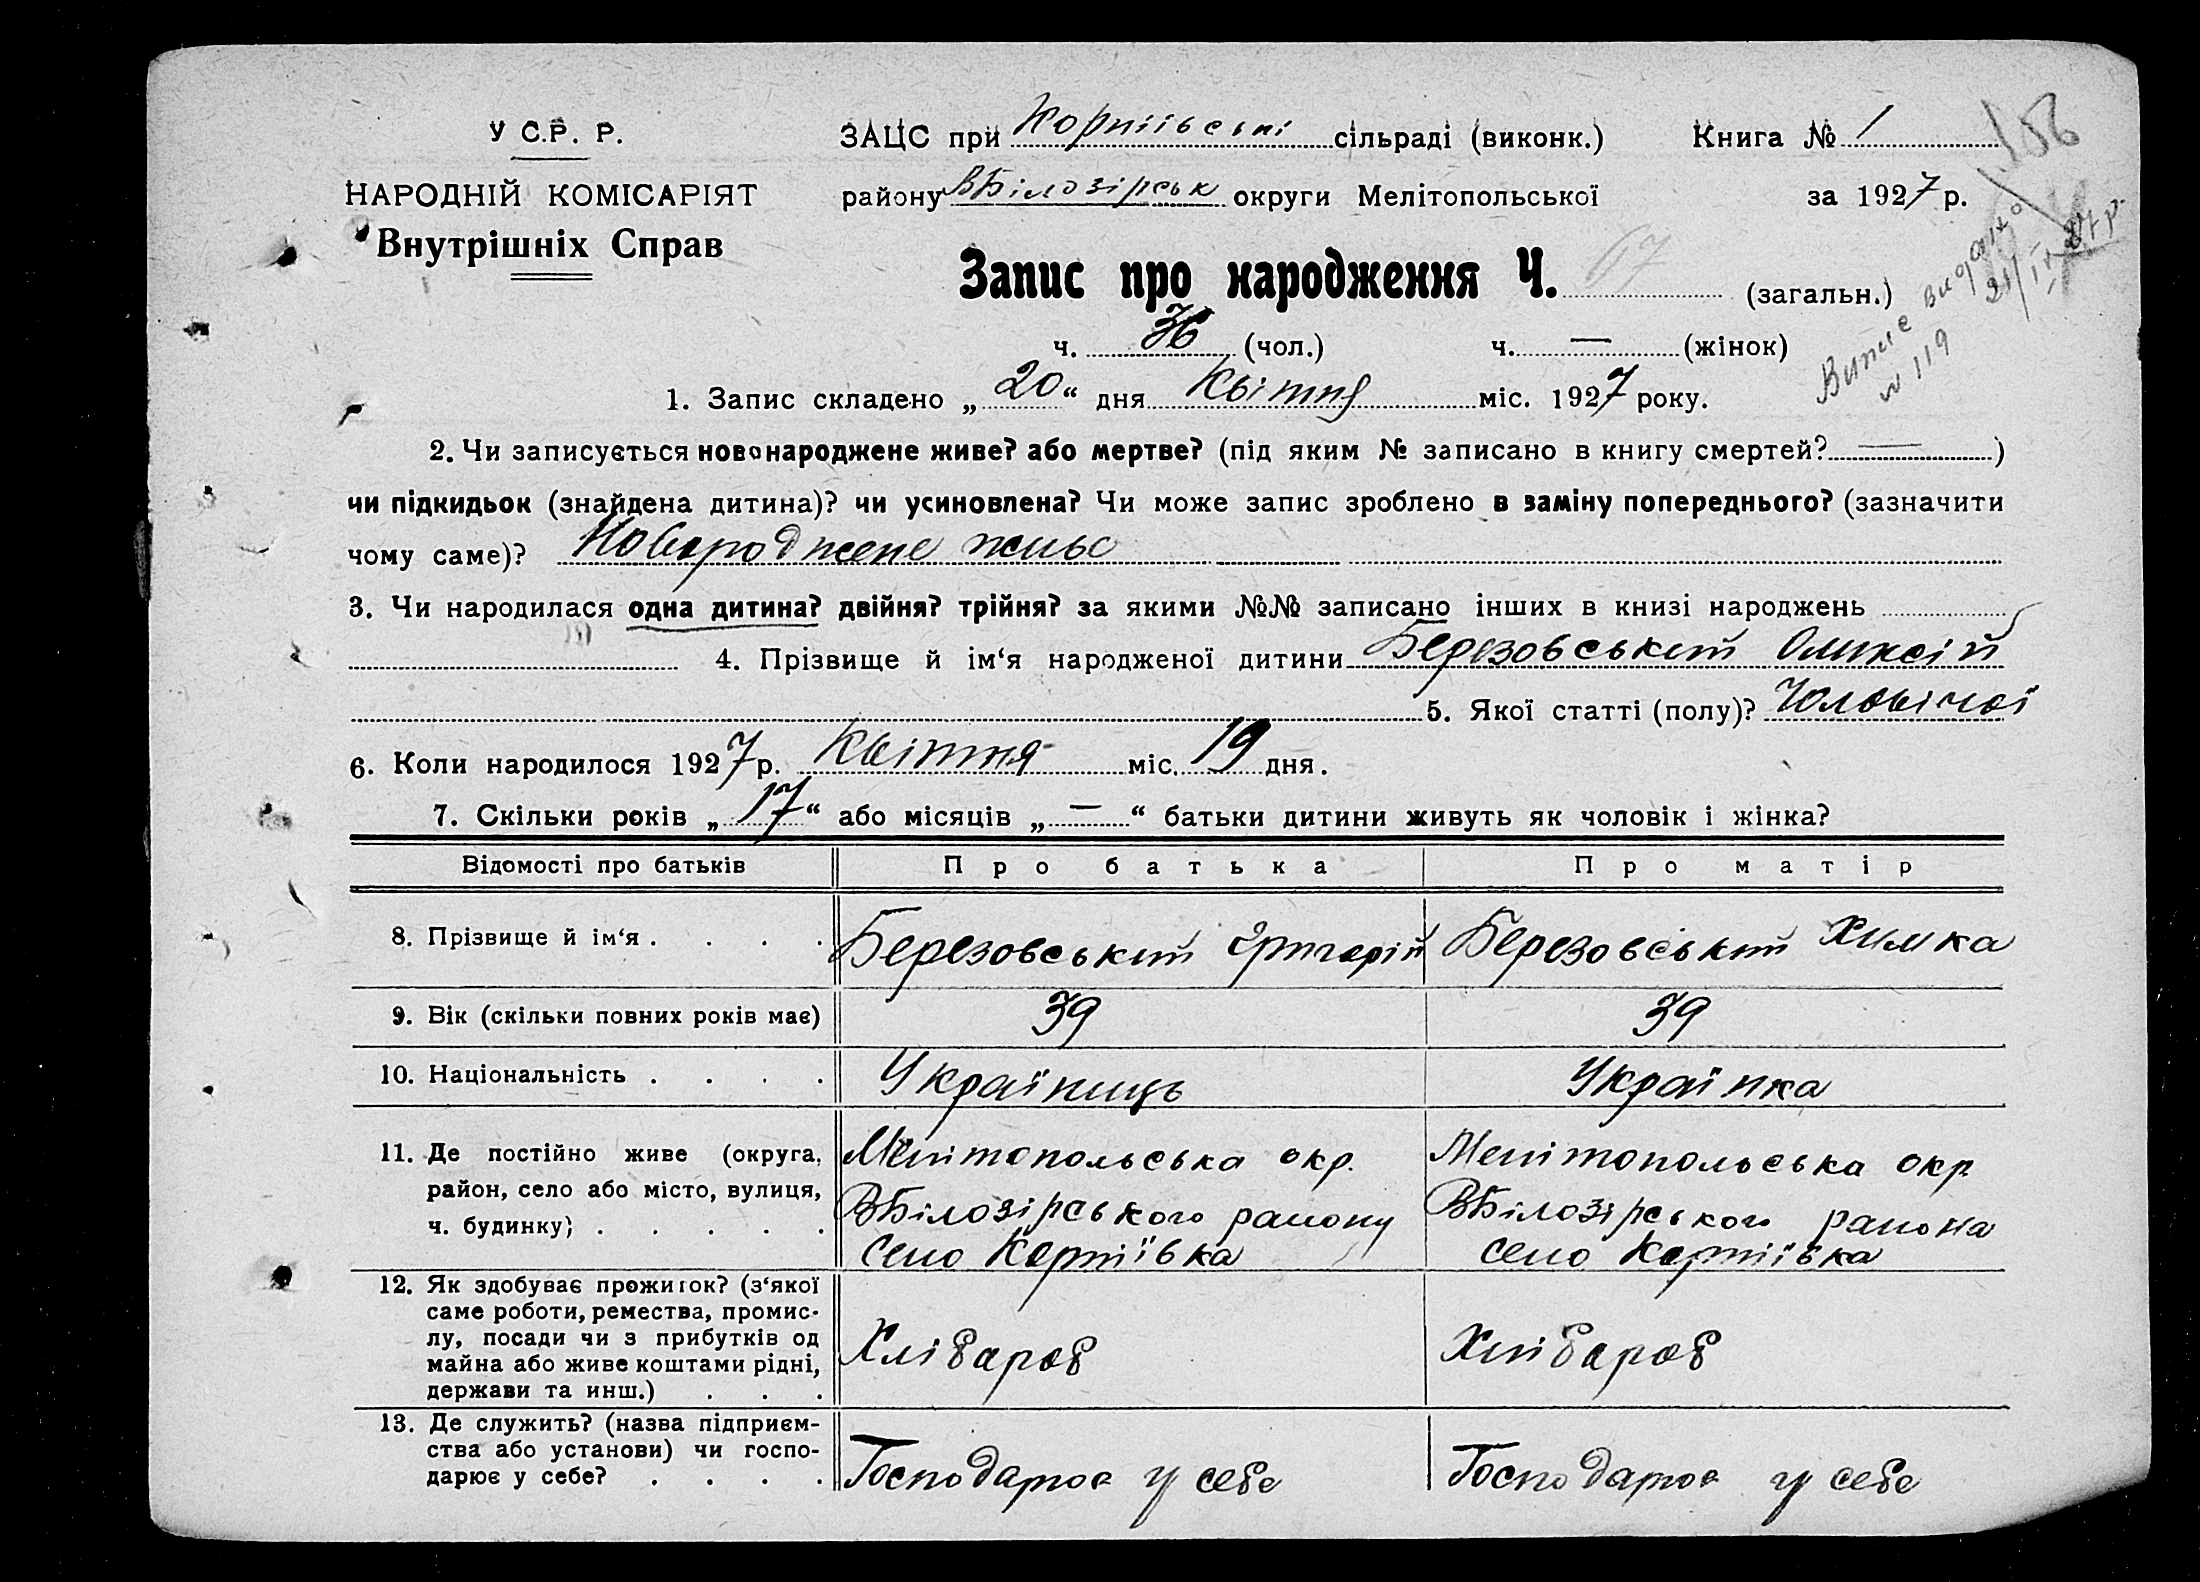 У С.Р. Р.
НАРОДНІЙ КОМІСАРІЯТ
Внутрішніх Справ
ЗАЦС при Корніївські сільраді (виконк.) Книга № 1
району ВБілозірськ округи Мелітопольської за 1927 р.
156
Запис про народження Ч. 67 (загальн.)
ч. 36 (чол.) ч. — (жінок)
Випис видано
№ 119
1. Запис складено „20“ дня Квітня міс. 1927 року.
2. Чи записується новонароджене живе? або мертве? (під яким № записано в книгу смертей? —)
чи підкидьок (знайдена дитина)? чи усиновлена? Чи може запис зроблено в заміну попереднього? (зазначити
чому саме)? Новороджене живе
3. Чи народилася одна дитина? двійня? трійня? за якими №№ записано інших в книзі народжень
4. Прізвище й ім‘я народженої дитини Березовський Оликсій
5. Якої статті (полу)? Чоловічої
6. Коли народилося 1927 р. Квітня міс. 19 дня.
7. Скільки років „17“ або місяців „—“ батьки дитини живуть як чоловік і жінка?
Відомості про батьків Про батька Про матір
8. Прізвище й ім‘я . . . . Березовський Григорій Березовський Химка
9. Вік (скільки повних років має) 39 39
10. Національність . . . . Україниць Українка
11. Де постійно живе (округа, Мелітопольська окр. Мелітопольська окр
район, село або місто, вулиця, ВБілозірського району ВБілозірського района
ч. будинку) . . . . . село Корніївка село Корніївка
12. Як здобуває прожиток? (з‘якої
саме роботи, ремества, промис-
лу, посади чи з прибутків од Хлібароб Хлібароб
майна або живе коштами рідні,
держави та инш.) . . .
13. Де служить? (назва підприєм-
ства або установи) чи госпо-
дарює у себе? . . . . Господарює у себе Господарює у себе